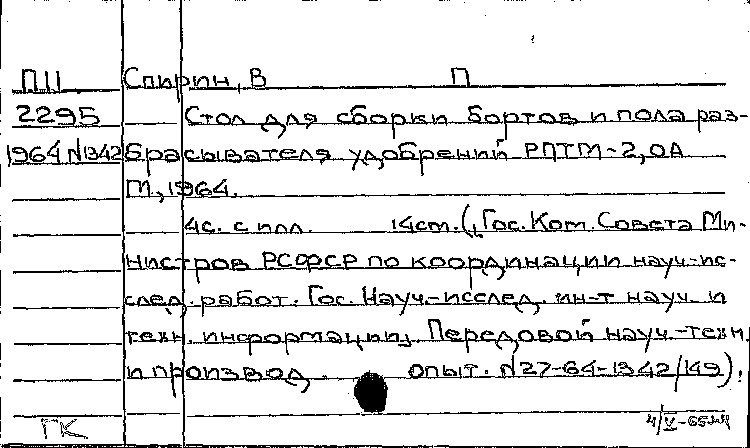 П11 Спирин, В П
2295 Стол для сборки бортов и пола раз-
1964 N1342 брасывателя удобрений РПТМ-2,0А
М, 1964.
4с. с илл. 14см. (Гос. Ком. Совета Ми-
нистров РСФСР по координации науч-ис-
след. работ. Гос. Науч-исслед. ин-т науч. и
техн. информации. Передовой науч.-техн.
и производ. опыт. N27-64-1342/149).
ГК 4/V-65